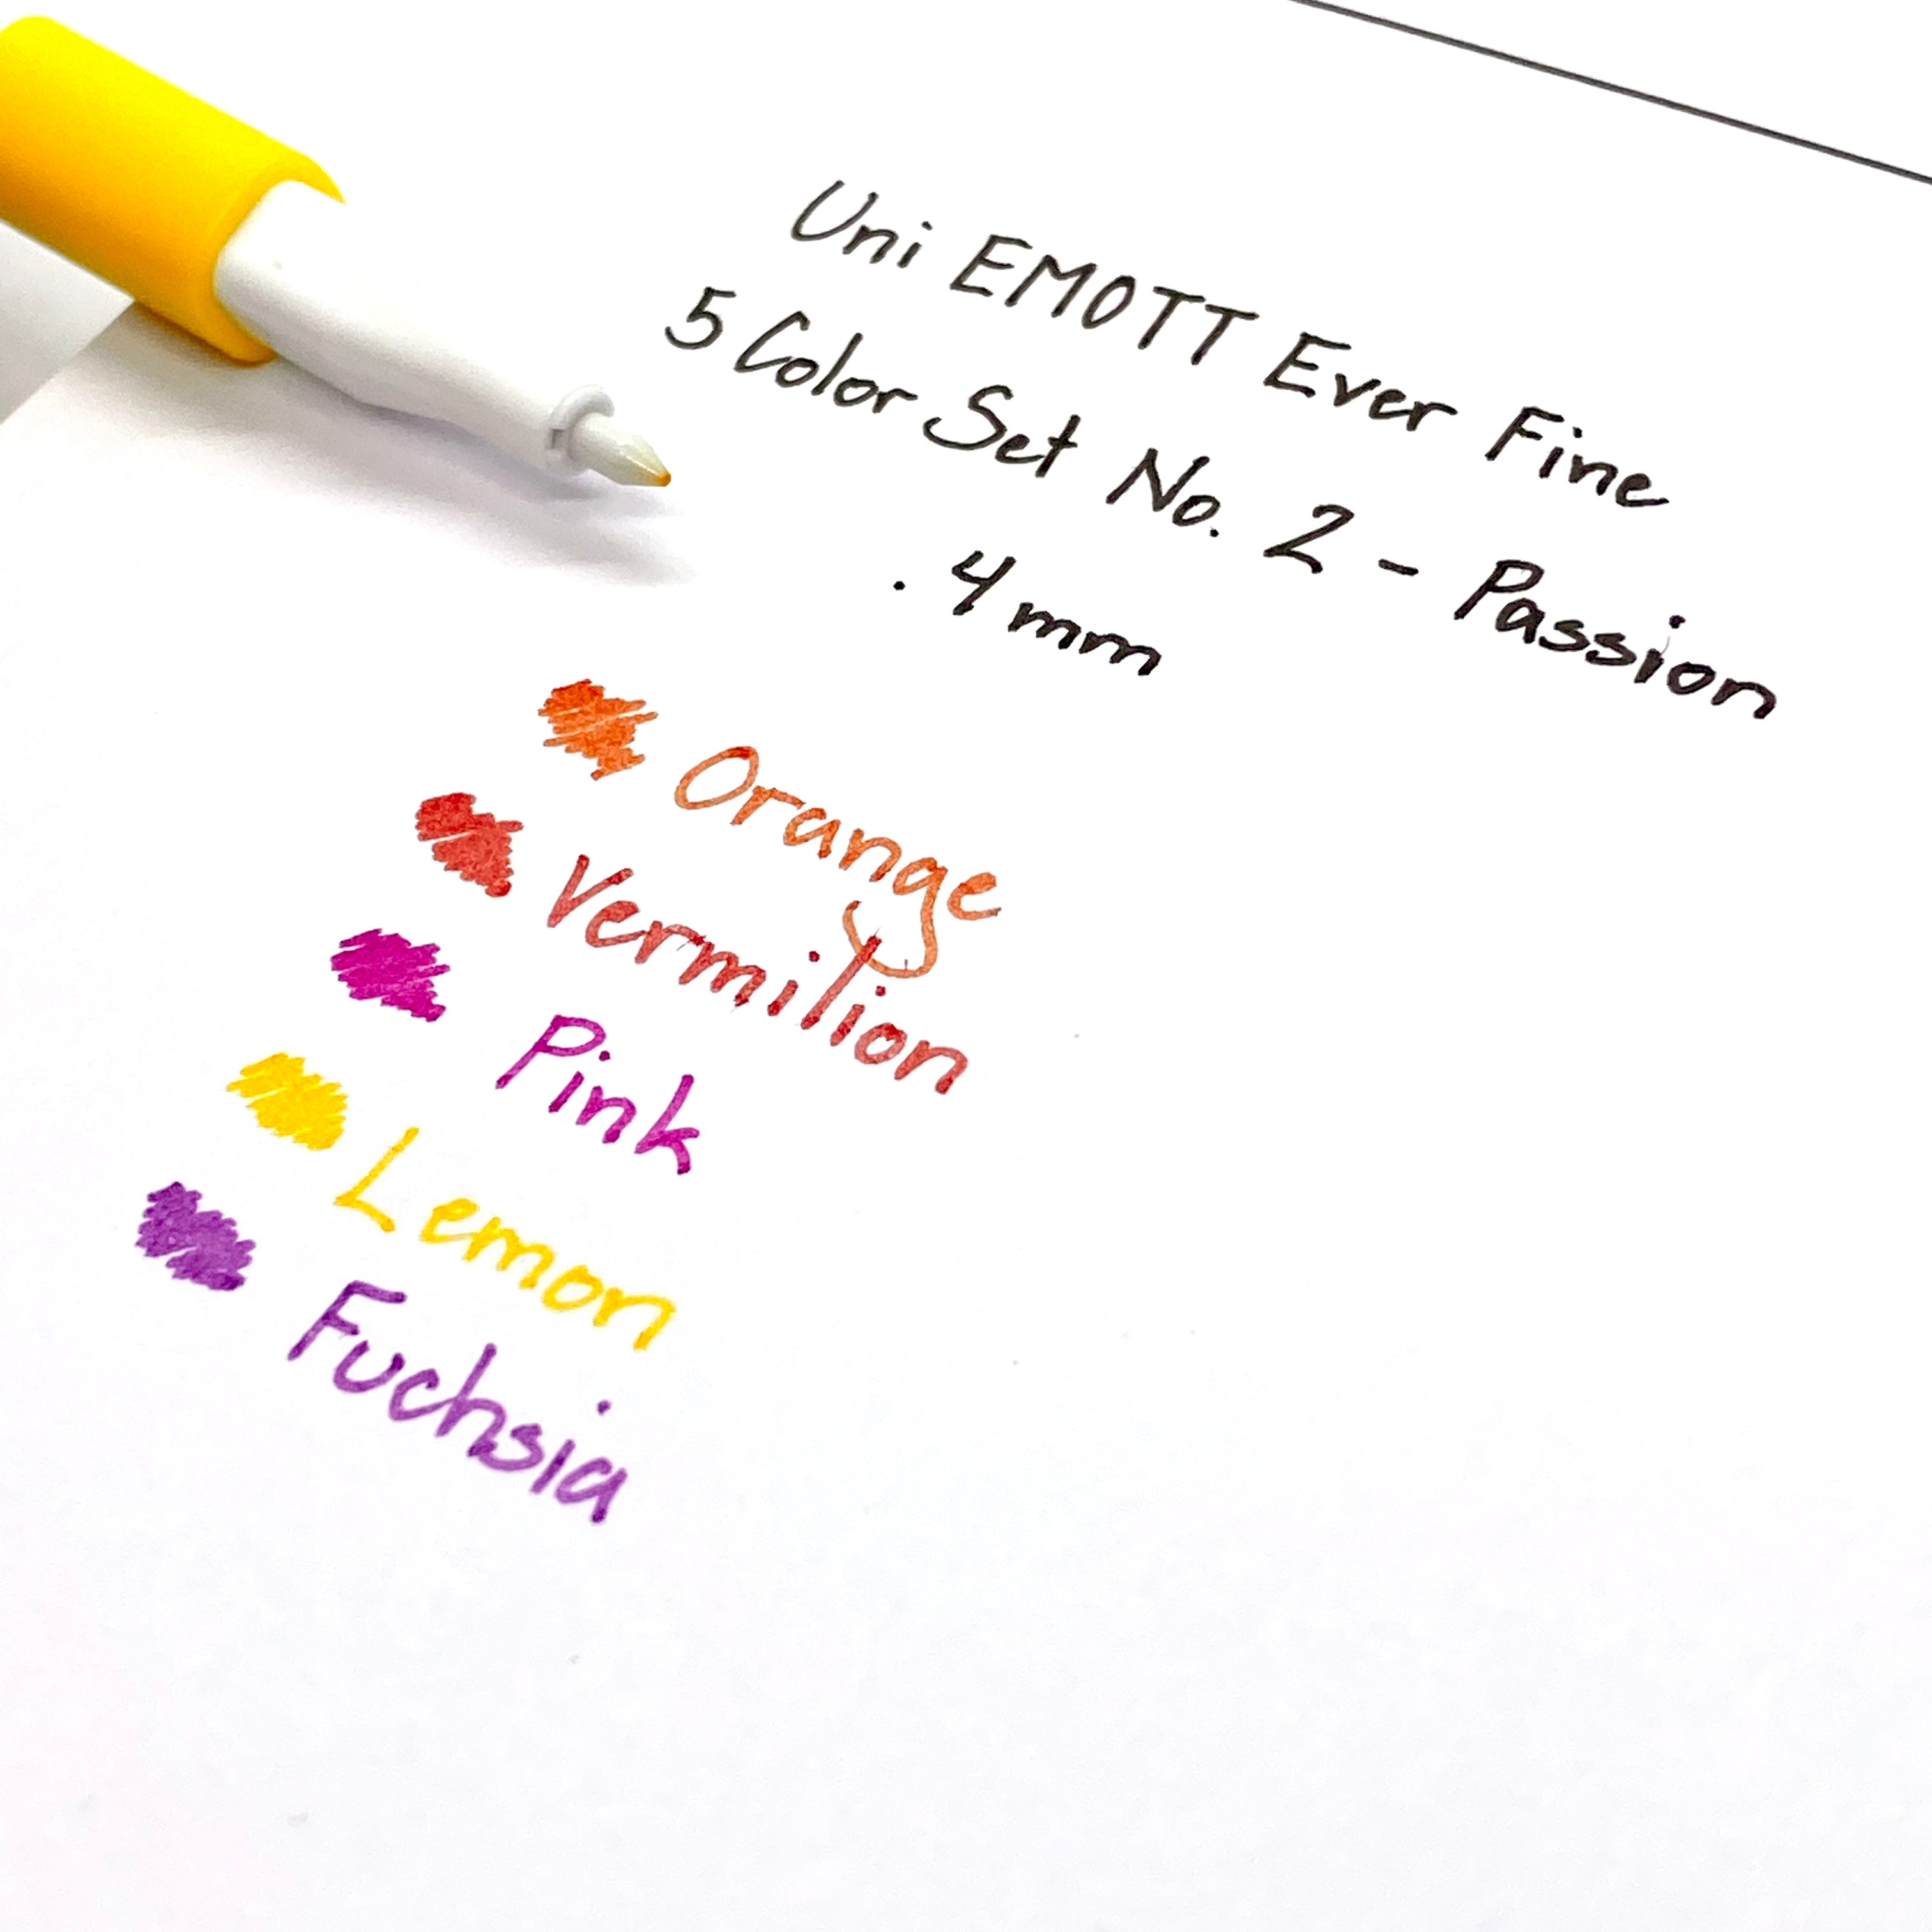 Uni EMOTT Ever Fine
5 Color Set No. 2 - Passion
.4mm
Orange
Vermilion
Pink
Lemon
Fuchsia